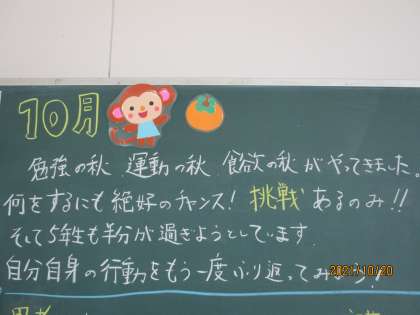 10月
勉強の秋 運動の秋 食欲の秋がやってきました。
何をするにも絶好のチャンス! 挑戦 あるのみ!!
そして5年生も半分が過ぎようとしています
自分自身の行動をもう一度ふり返ってみよう!
2021/10/20